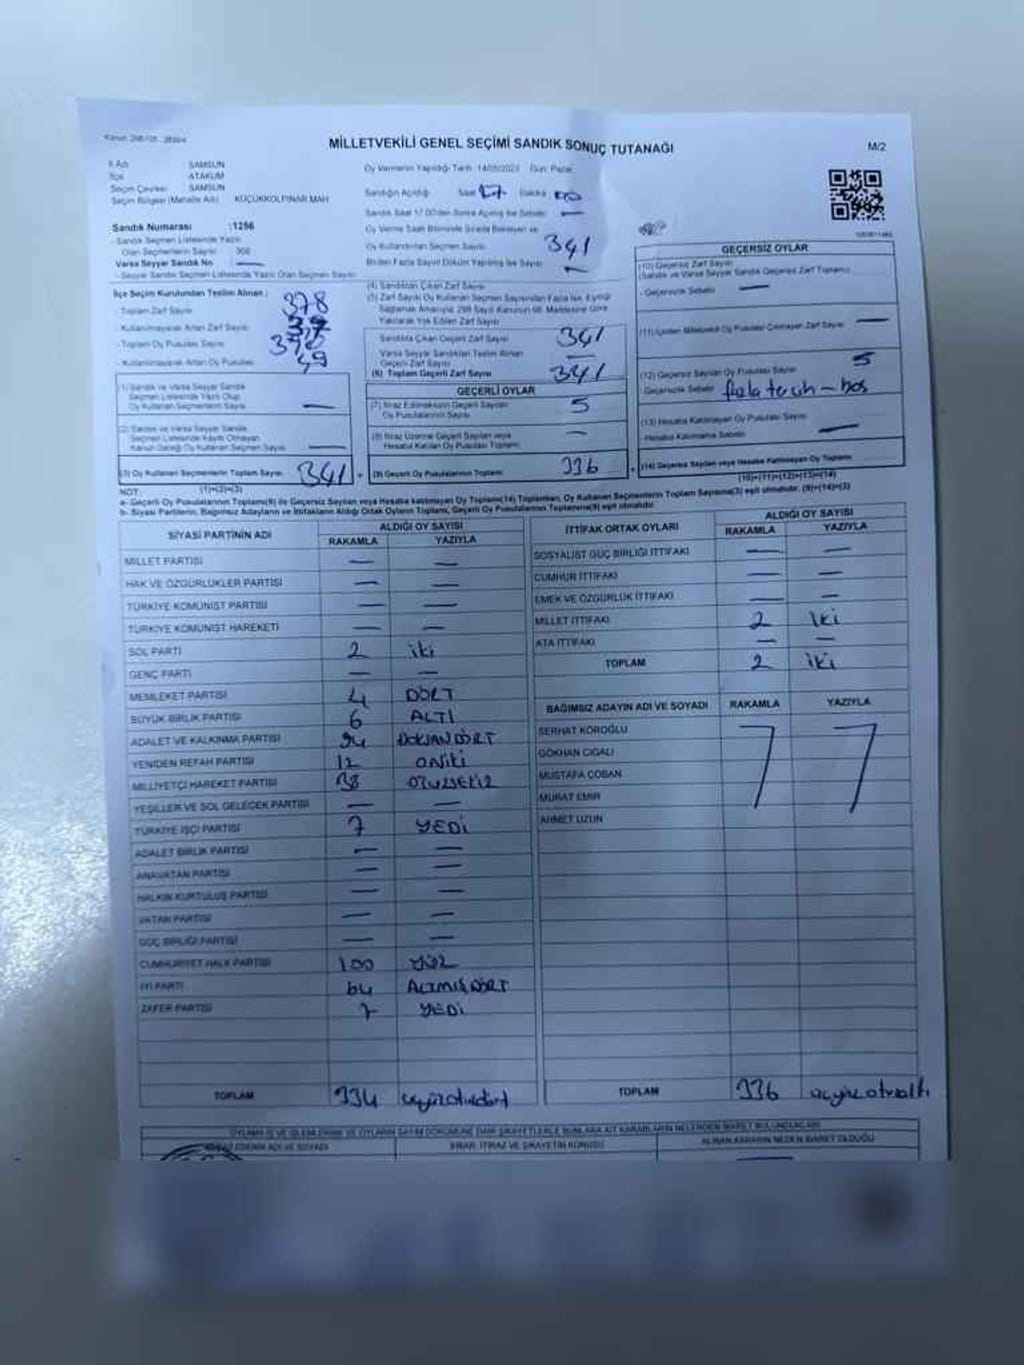 MİLLETVEKİLİ GENEL SEÇİMİ SANDIK SONUÇ TUTANAĞI
M/2
İl Adı SAMSUN
İlçe ATAKUM
Seçim Çevresi SAMSUN
Seçim Bölgesi (Mahalle Adı) KÜÇÜKKOLPINAR MAH
Sandık Numarası :1256
- Sandık Seçmen Listesinde Yazılı
Olan Seçmenlerin Sayısı
Varsa Seyyar Sandık No —
- Seyyar Sandık Seçmen Listesinde Yazılı Olan Seçmen Sayısı
Oy Vermenin Yapıldığı Tarih 14/05/2023 Gün Pazar
Sandığın Açıldığı Saat 17 Dakika 00
Sandık Saat 17.00'den Sonra Açılmış İse Sebebi —
Oy Verme Saati Bitiminde Sırada Bekleyen ve
Oy Kullandırılan Seçmen Sayısı 341
Birden Fazla Sayım Döküm Yapılmış İse Sayısı
İlçe Seçim Kurulundan Teslim Alınan ;
- Toplam Zarf Sayısı 378
- Kullanılmayarak Artan Zarf Sayısı 37
- Toplam Oy Pusulası Sayısı 390
- Kullanılmayarak Artan Oy Pusulası 49
(1) Sandık ve Varsa Seyyar Sandık
Seçmen Listesinde Yazılı Olup
Oy Kullanan Seçmenlerin Sayısı —
(2) Sandık ve Varsa Seyyar Sandık
Seçmen Listesinde Kayıtlı Olmayan
Kanun Gereği Oy Kullanan Seçmen Sayısı —
(3) Oy Kullanan Seçmenlerin Toplam Sayısı 341
(1)+(2)=(3)
(4) Sandıktan Çıkan Zarf Sayısı
(5) Zarf Sayısı Oy Kullanan Seçmen Sayısından Fazla İse, Eşitliği
Sağlamak Amacıyla, 298 Sayılı Kanunun 98. Maddesine Göre
Yakılarak Yok Edilen Zarf Sayısı
Sandıkta Çıkan Geçerli Zarf Sayısı 341
Varsa Seyyar Sandıktan Teslim Alınan
Geçerli Zarf Sayısı —
(6) Toplam Geçerli Zarf Sayısı 341
GEÇERLİ OYLAR
(7) İtiraz Edilmeksizin Geçerli Sayılan
Oy Pusulalarının Sayısı 5
(8) İtiraz Üzerine Geçerli Sayılan veya
Hesaba Katılan Oy Pusulaları Toplamı —
(9) Geçerli Oy Pusulalarının Toplamı 336
GEÇERSİZ OYLAR
(10) Geçersiz Zarf Sayısı
(Sandık ve Varsa Seyyar Sandık Geçersiz Zarf Toplamı)
- Geçersizlik Sebebi —
(11) İçinden Milletvekili Oy Pusulası Çıkmayan Zarf Sayısı —
(12) Geçersiz Sayılan Oy Pusulası Sayısı 5
Geçersizlik Sebebi fazla tercih – boş
(13) Hesaba Katılmayan Oy Pusulası Sayısı
- Hesaba Katılmama Sebebi —
(14) Geçersiz Sayılan veya Hesaba Katılmayan Oy Toplamı
(10)+(11)+(12)+(13)=(14)
NOT:
a- Geçerli Oy Pusulalarının Toplamı(9) ile Geçersiz Sayılan veya Hesaba katılmayan Oy Toplamı(14) Toplamları, Oy Kullanan Seçmenlerin Toplam Sayısına(3) eşit olmalıdır. (9)+(14)=(3)
b- Siyasi Partilerin, Bağımsız Adayların ve İttifakların Aldığı Ortak Oyların Toplamı, Geçerli Oy Pusulalarının Toplamına(9) eşit olmalıdır
SİYASİ PARTİNİN ADI ALDIĞI OY SAYISI
RAKAMLA YAZIYLA
MİLLET PARTİSİ — —
HAK VE ÖZGÜRLÜKLER PARTİSİ — —
TÜRKİYE KOMÜNİST PARTİSİ — —
TÜRKİYE KOMÜNİST HAREKETİ — —
SOL PARTİ 2 iki
GENÇ PARTİ — —
MEMLEKET PARTİSİ 4 DÖRT
BÜYÜK BİRLİK PARTİSİ 6 ALTI
ADALET VE KALKINMA PARTİSİ 94 DOKSANDÖRT
YENİDEN REFAH PARTİSİ 12 ONİKİ
MİLLİYETÇİ HAREKET PARTİSİ 38 OTUZSEKİZ
YEŞİLLER VE SOL GELECEK PARTİSİ — —
TÜRKİYE İŞÇİ PARTİSİ 7 YEDİ
ADALET BİRLİK PARTİSİ — —
ANAVATAN PARTİSİ — —
HALKIN KURTULUŞ PARTİSİ — —
VATAN PARTİSİ — —
GÜÇ BİRLİĞİ PARTİSİ — —
CUMHURİYET HALK PARTİSİ 100 YÜZ
İYİ PARTİ 64 ALTMIŞDÖRT
ZAFER PARTİSİ 7 YEDİ
TOPLAM 334 üçyüzotuzdört
İTTİFAK ORTAK OYLARI ALDIĞI OY SAYISI
RAKAMLA YAZIYLA
SOSYALİST GÜÇ BİRLİĞİ İTTİFAKI — —
CUMHUR İTTİFAKI — —
EMEK VE ÖZGÜRLÜK İTTİFAKI — —
MİLLET İTTİFAKI 2 iki
ATA İTTİFAKI — —
TOPLAM 2 iki
BAĞIMSIZ ADAYIN ADI VE SOYADI RAKAMLA YAZIYLA
SERHAT KÖROĞLU
GÖKHAN CIGALI
MUSTAFA ÇOBAN
MURAT EMİR
AHMET UZUN
TOPLAM 336 üçyüzotuzaltı
OYLAMA İŞ VE İŞLEMLERİNE VE OYLARIN SAYIM DÖKÜMÜNE DAİR ŞİKAYETLERLE BUNLARA AİT KARARLARIN NELERDEN İBARET BULUNDUKLARI
ADI VE SOYADI
İHBAR, İTİRAZ VE ŞİKAYETİN KONUSU
ALINAN KARARIN NEDEN İBARET OLDUĞU